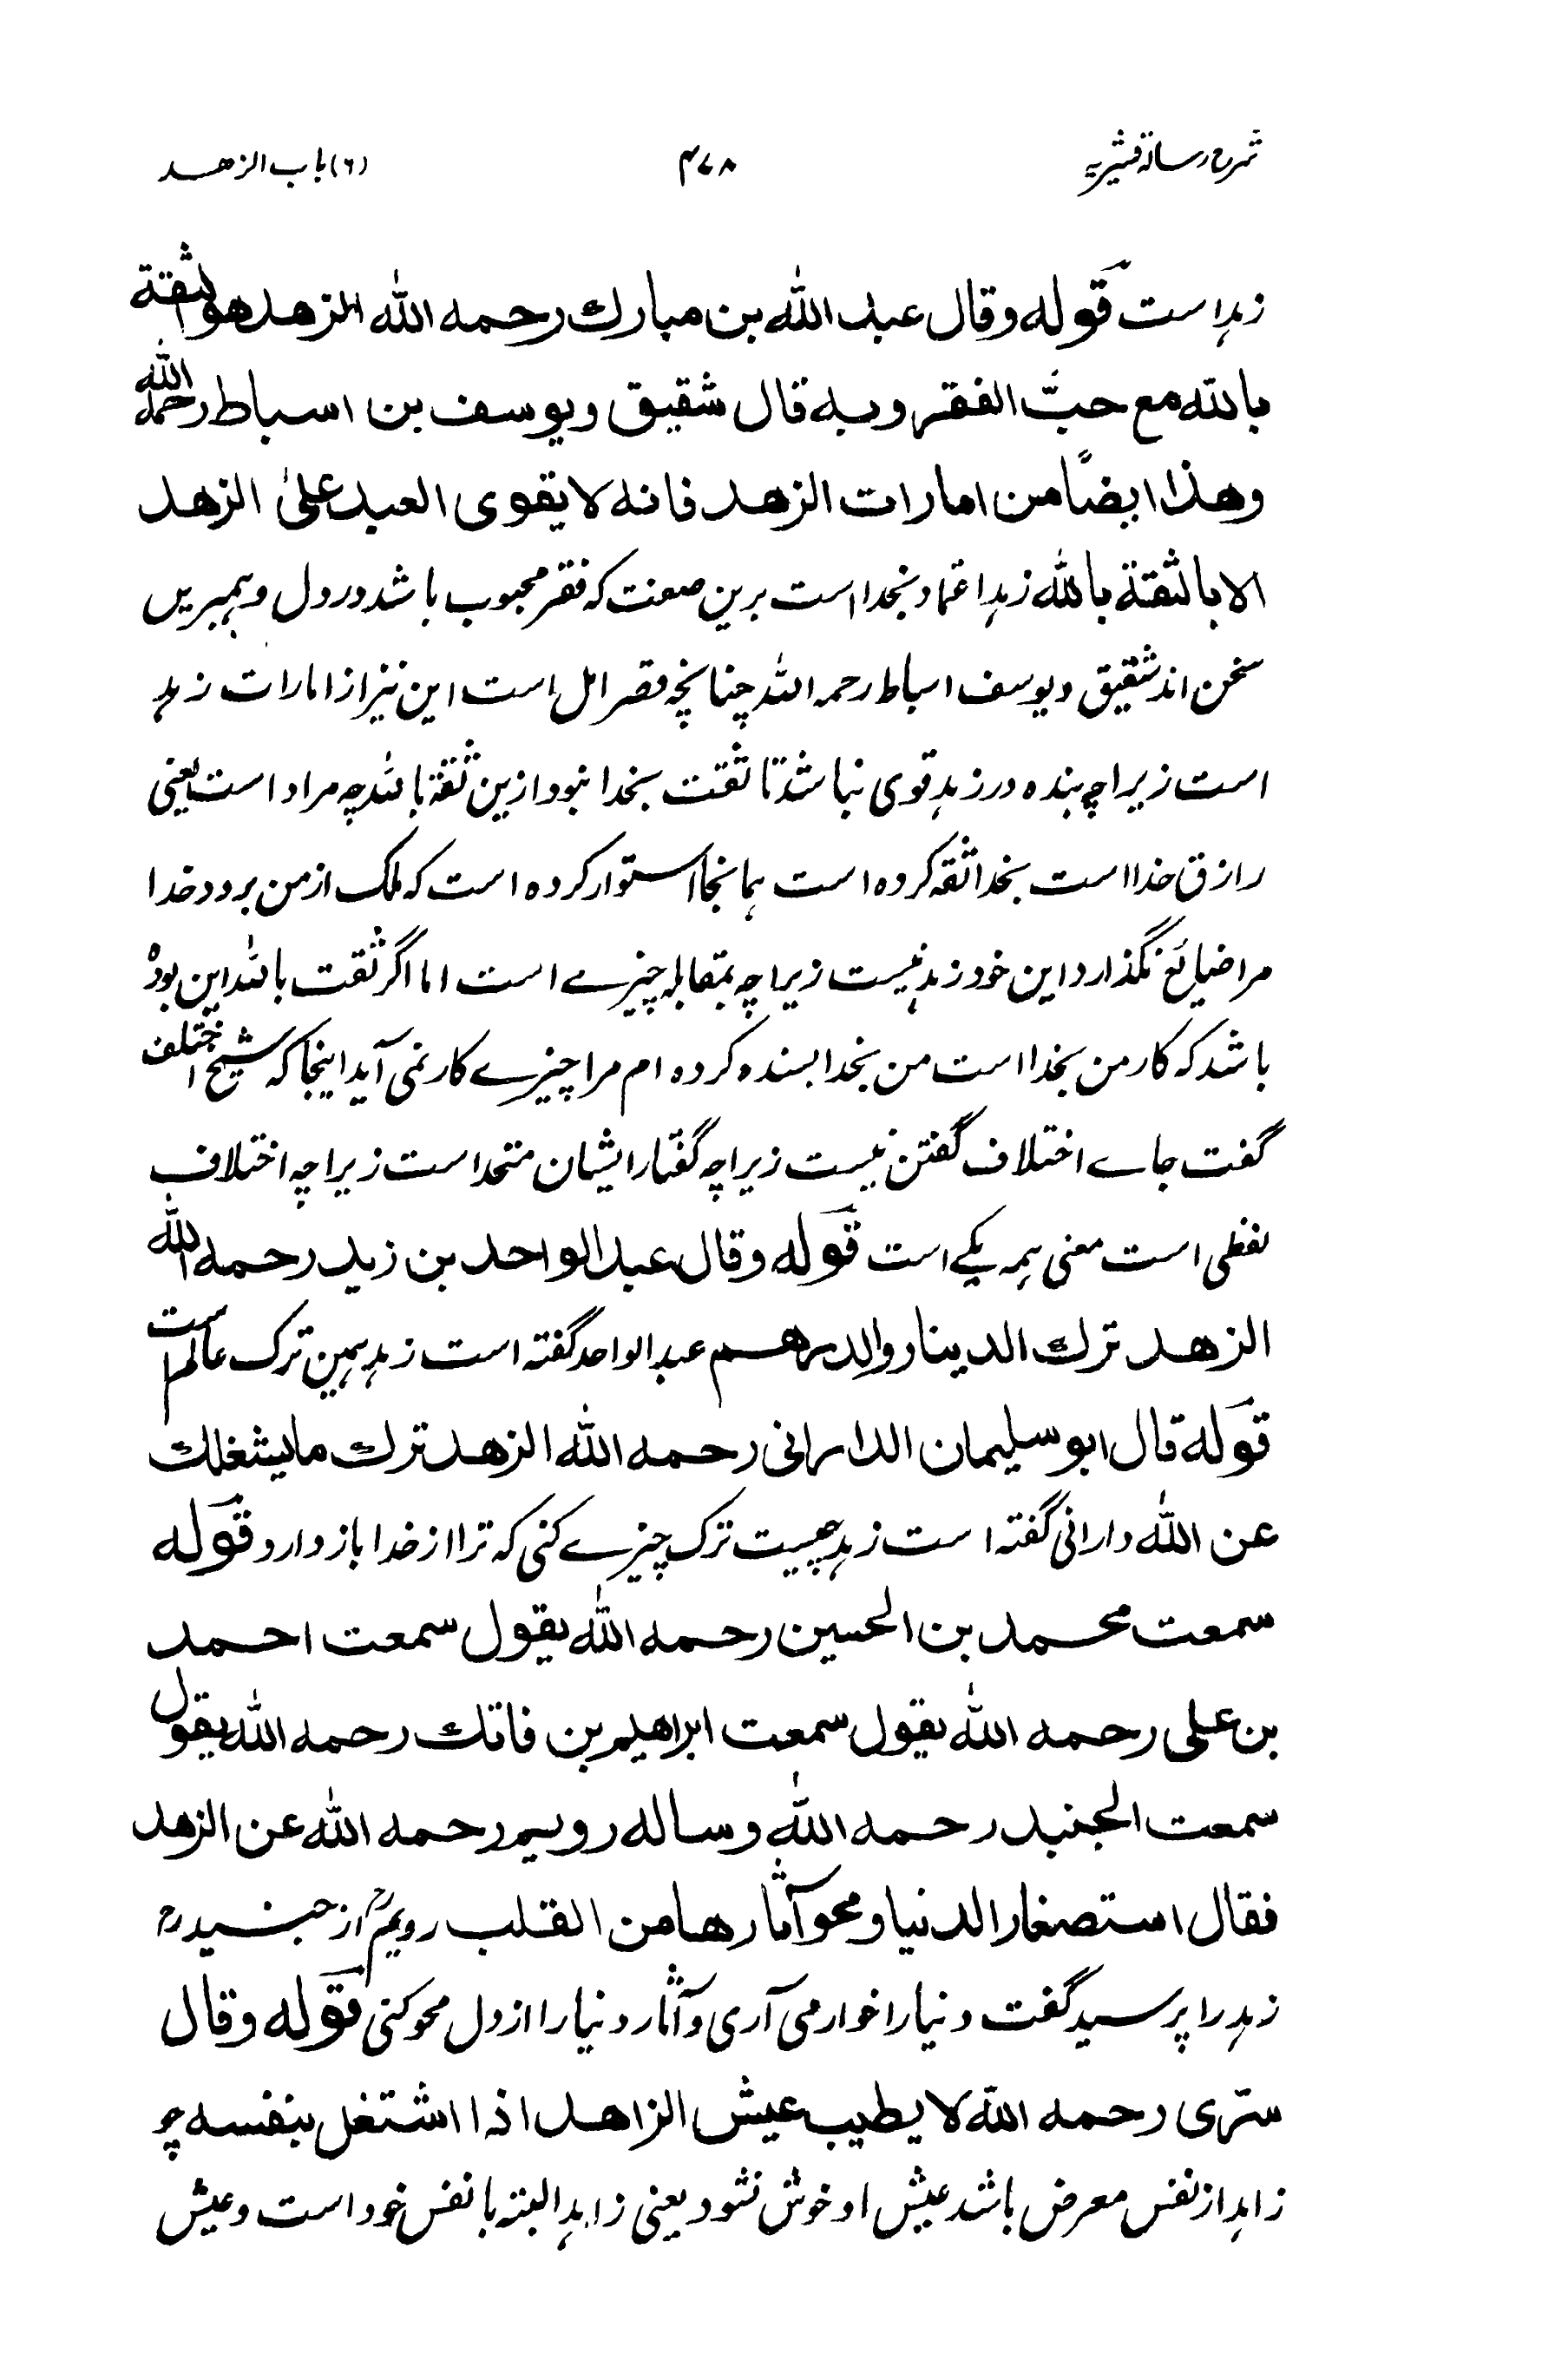 شرح رسالۀ قشیریه ۴۷۸ (۶) باب الزهد
زہد است قوله وقال عبد الله بن مبارك رحمه الله الزهد هو الثقة
بالله مع حبّ الفقر وبه قال شقیق ویوسف بن اسباط رحمه الله
وهذا ایضًا من امارات الزهد فانه لا یقوی العبد علیٰ الزهد
الا بالثقة بالله زہد اعتماد بخدا است برین صفت که فقر محبوب باشد در دل و ہمبریں
سخن اند شقیق و یوسف اسباط رحمہ اللہ چنانچہ قصر امل است این نیز از امارات زہد
است زیراچہ بندہ در زہد قوی نباشد تا ثقت بخدا نبود ازین ثقۃ باللہ چہ مراد است یعنی
رازق خدا است بخدا ثقہ کردہ است ہمانجا استوار کردہ است کہ ملک از من برود خدا
مرا ضایٔع نگذارد این خود زہد نیست زیراچہ بمقابلہ چیزے است اما اگر ثقت باللہ این بودہ
باشد کہ کار من بخدا است من بخدا بسندہ کردہ ام مرا چیزے کار نمی آید اینجا کہ شیخ اختلف
گفت جاے اختلاف گفتن نیست زیراچہ گفتار ایشان متحد است زیراچہ اختلاف
لفظی است معنی ہمہ یکے است قوله وقال عبد الواحد بن زید رحمه الله
الزهد ترك الدینار والدرهم عبد الواحد گفتہ است زہد ہمین ترک عالم است
قوله قال ابو سلیمان الدارانی رحمه الله الزهد ترك ما یشغلك
عن الله دارانی گفتہ است زہد چیست ترک چیزے کنی کہ ترا از خدا باز دارد قوله
سمعت محمد بن الحسین رحمه الله یقول سمعت احمد
بن علی رحمه الله یقول سمعت ابراهیم بن فاتك رحمه الله یقول
سمعت الجنید رحمه الله وساله رویم رحمه الله عن الزهد
فقال استصغار الدنیا ومحو آثارها من القلب رویمؒ از جنیدؒ
زہد را پرسید گفت دنیا را خوار می آری و آثار دنیا را از دل محو کنی قوله وقال
سرّی رحمه الله لا یطیب عیش الزاهد اذا اشتغل بنفسه چو
زاہد از نفس معرض باشد عیش او خوش نشود یعنی زاہد البتہ با نفس خود است و عیش